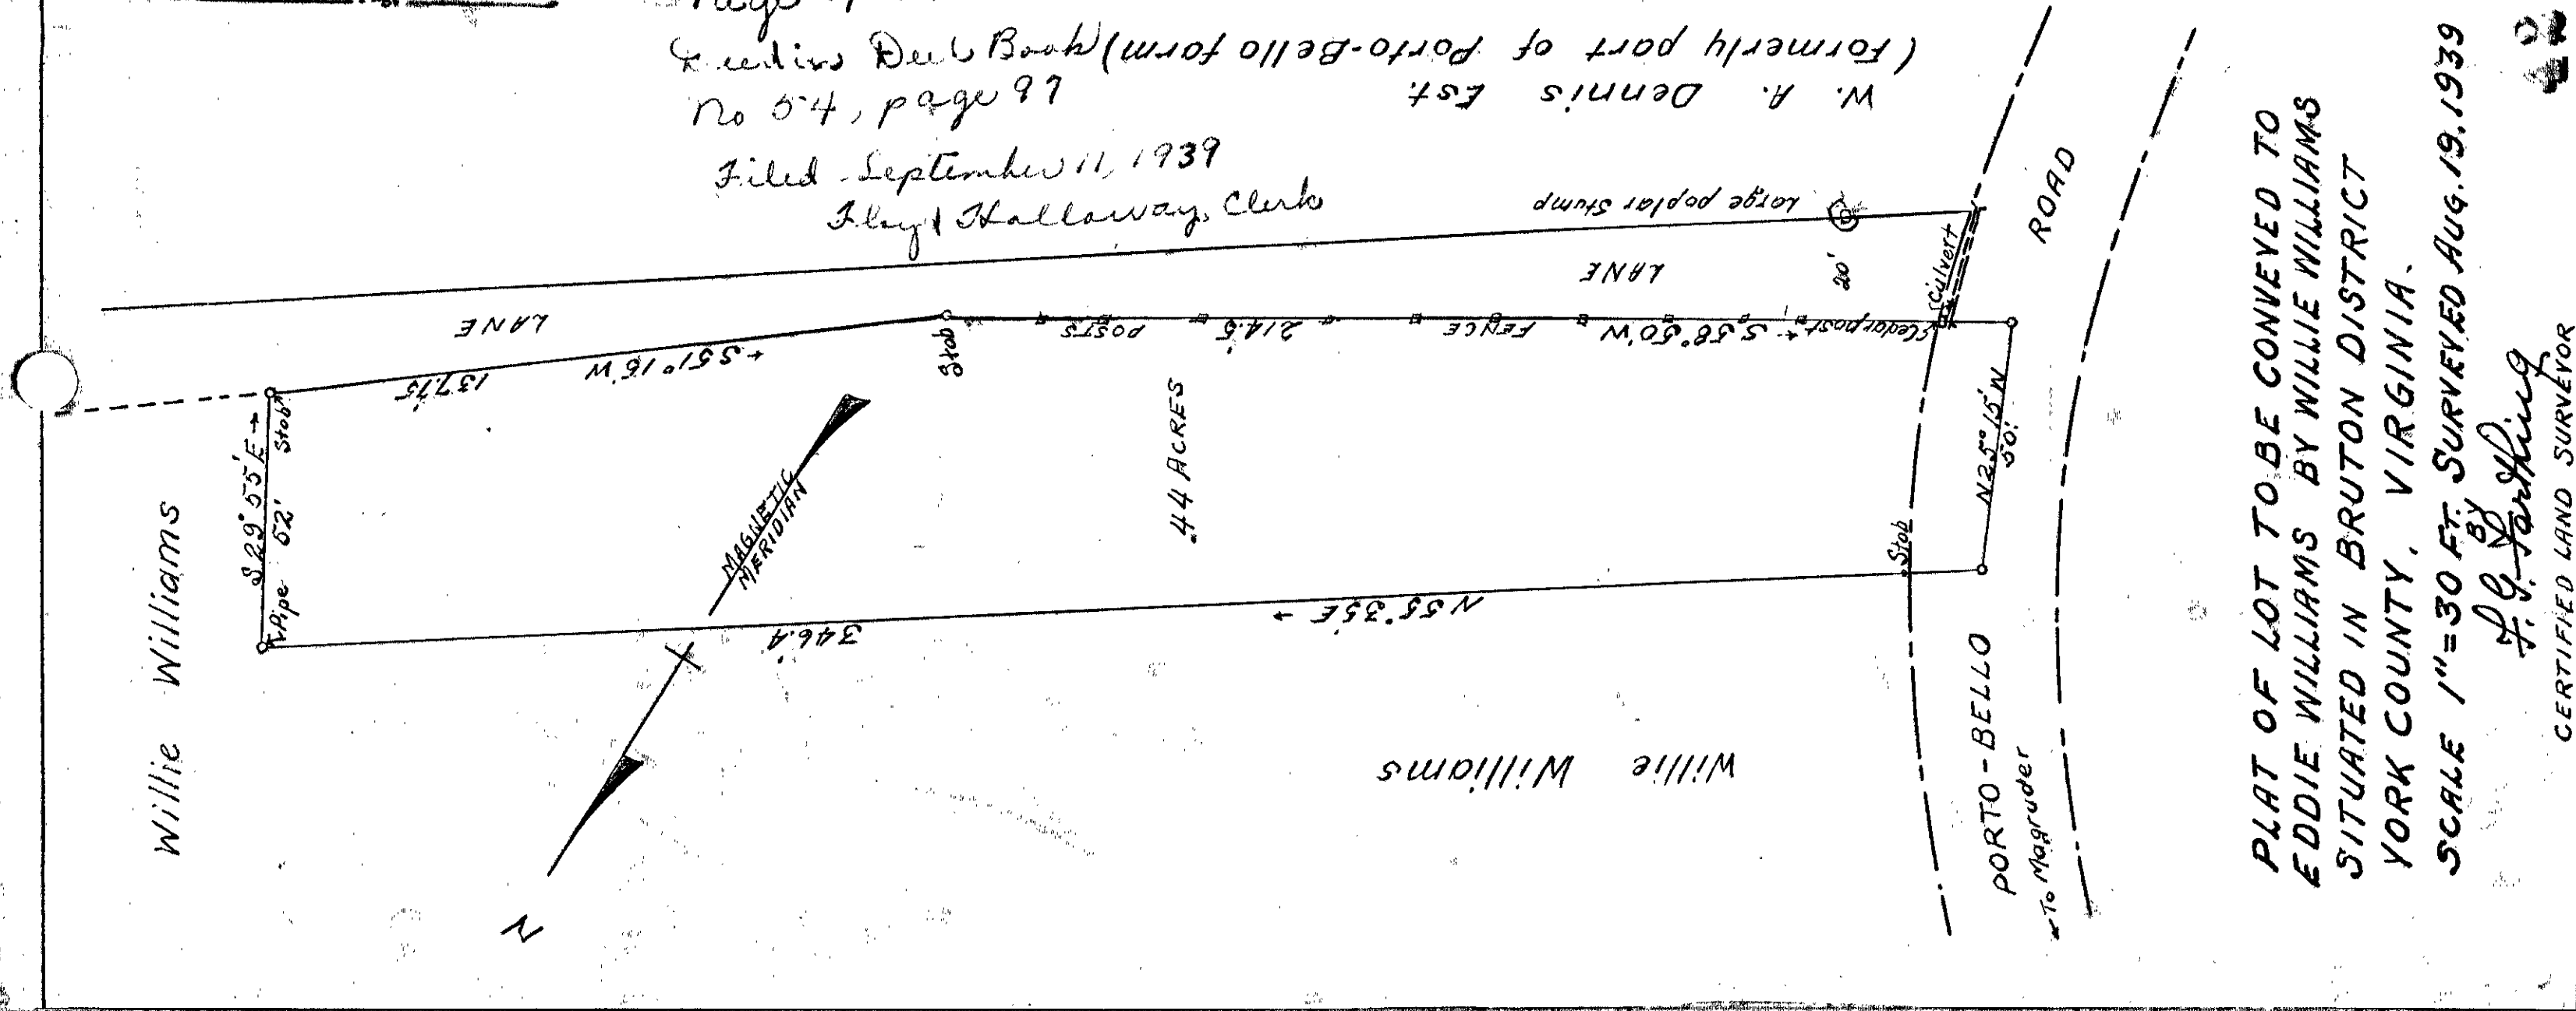 Page
Deed Book
No 54, page 97
Filed September 11, 1939
Floyd Hallaway, Clerk
W. A. Dennis Est.
(Formerly part of Porto-Bello farm)
Large poplar stump
20'
LANE
Culvert
LANE
Cedar post
S 58° 50' W
FENCE
214.5
POSTS
Stob
S 51° 15' W
137.75
S 29° 55' E
52'
Stob
Pipe
346.4
N 55° 35' E
Stob
N 25° 15' W
50'
.44 ACRES
MAGNETIC
MERIDIAN
N
Willie Williams
Willie Williams
PORTO-BELLO ROAD
To Magruder
PLAT OF LOT TO BE CONVEYED TO
EDDIE WILLIAMS BY WILLIE WILLIAMS
SITUATED IN BRUTON DISTRICT
YORK COUNTY, VIRGINIA.
SCALE 1"=30 FT. SURVEYED AUG. 19. 1939
BY
F. G. Farthing
CERTIFIED LAND SURVEYOR